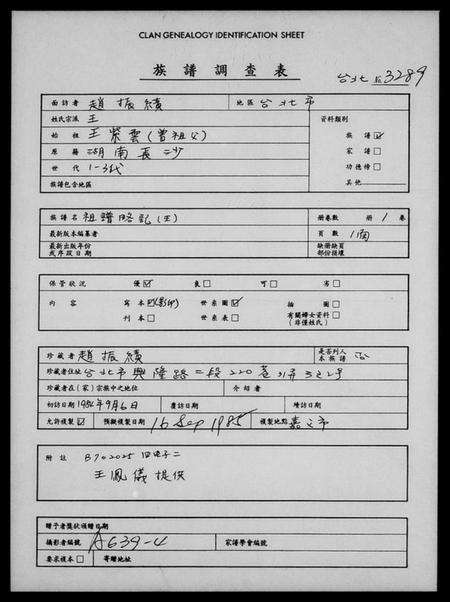 CLAN GENEALOGY IDENTIFICATION SHEET
族譜調查表
台北 3289
面訪者 趙振績 地區 台北市
姓氏宗派 王
資料類別
始祖 王紫雲(曾祖父)
族譜 ☑
原籍 湖南長沙
家譜 □
世代 1-3代
功德榜 □
族譜包含地區
其他
族譜名 祖譜略記(王) 冊卷數 冊 1 卷
最新版本編纂者 頁數 1面
最新出版年份或序跋日期 缺冊缺頁部份損壞
保管狀況 優 ☑ 良 □ 可 □ 劣 □
內容 寫本 ☑(影印) 世系圖 ☑ 插圖 □
刊本 □ 世系表 □ 有關婦女資料(非僅姓氏) □
珍藏者 趙振績 是否列入本族譜 否
珍藏者住址 台北市興隆路二段220巷
珍藏者在(家)宗族中之地位 介紹者
初訪日期 1984年9月6日 覆訪日期 續訪日期
允許複製 ☑ 預擬複製日期 16 Sep 1985 複製地點
附註 B702025
王鳳儀提供
贈予者獎狀頒贈日期
攝影者編號 A639-4 家譜學會編號
要求複本 □ 寄贈地址